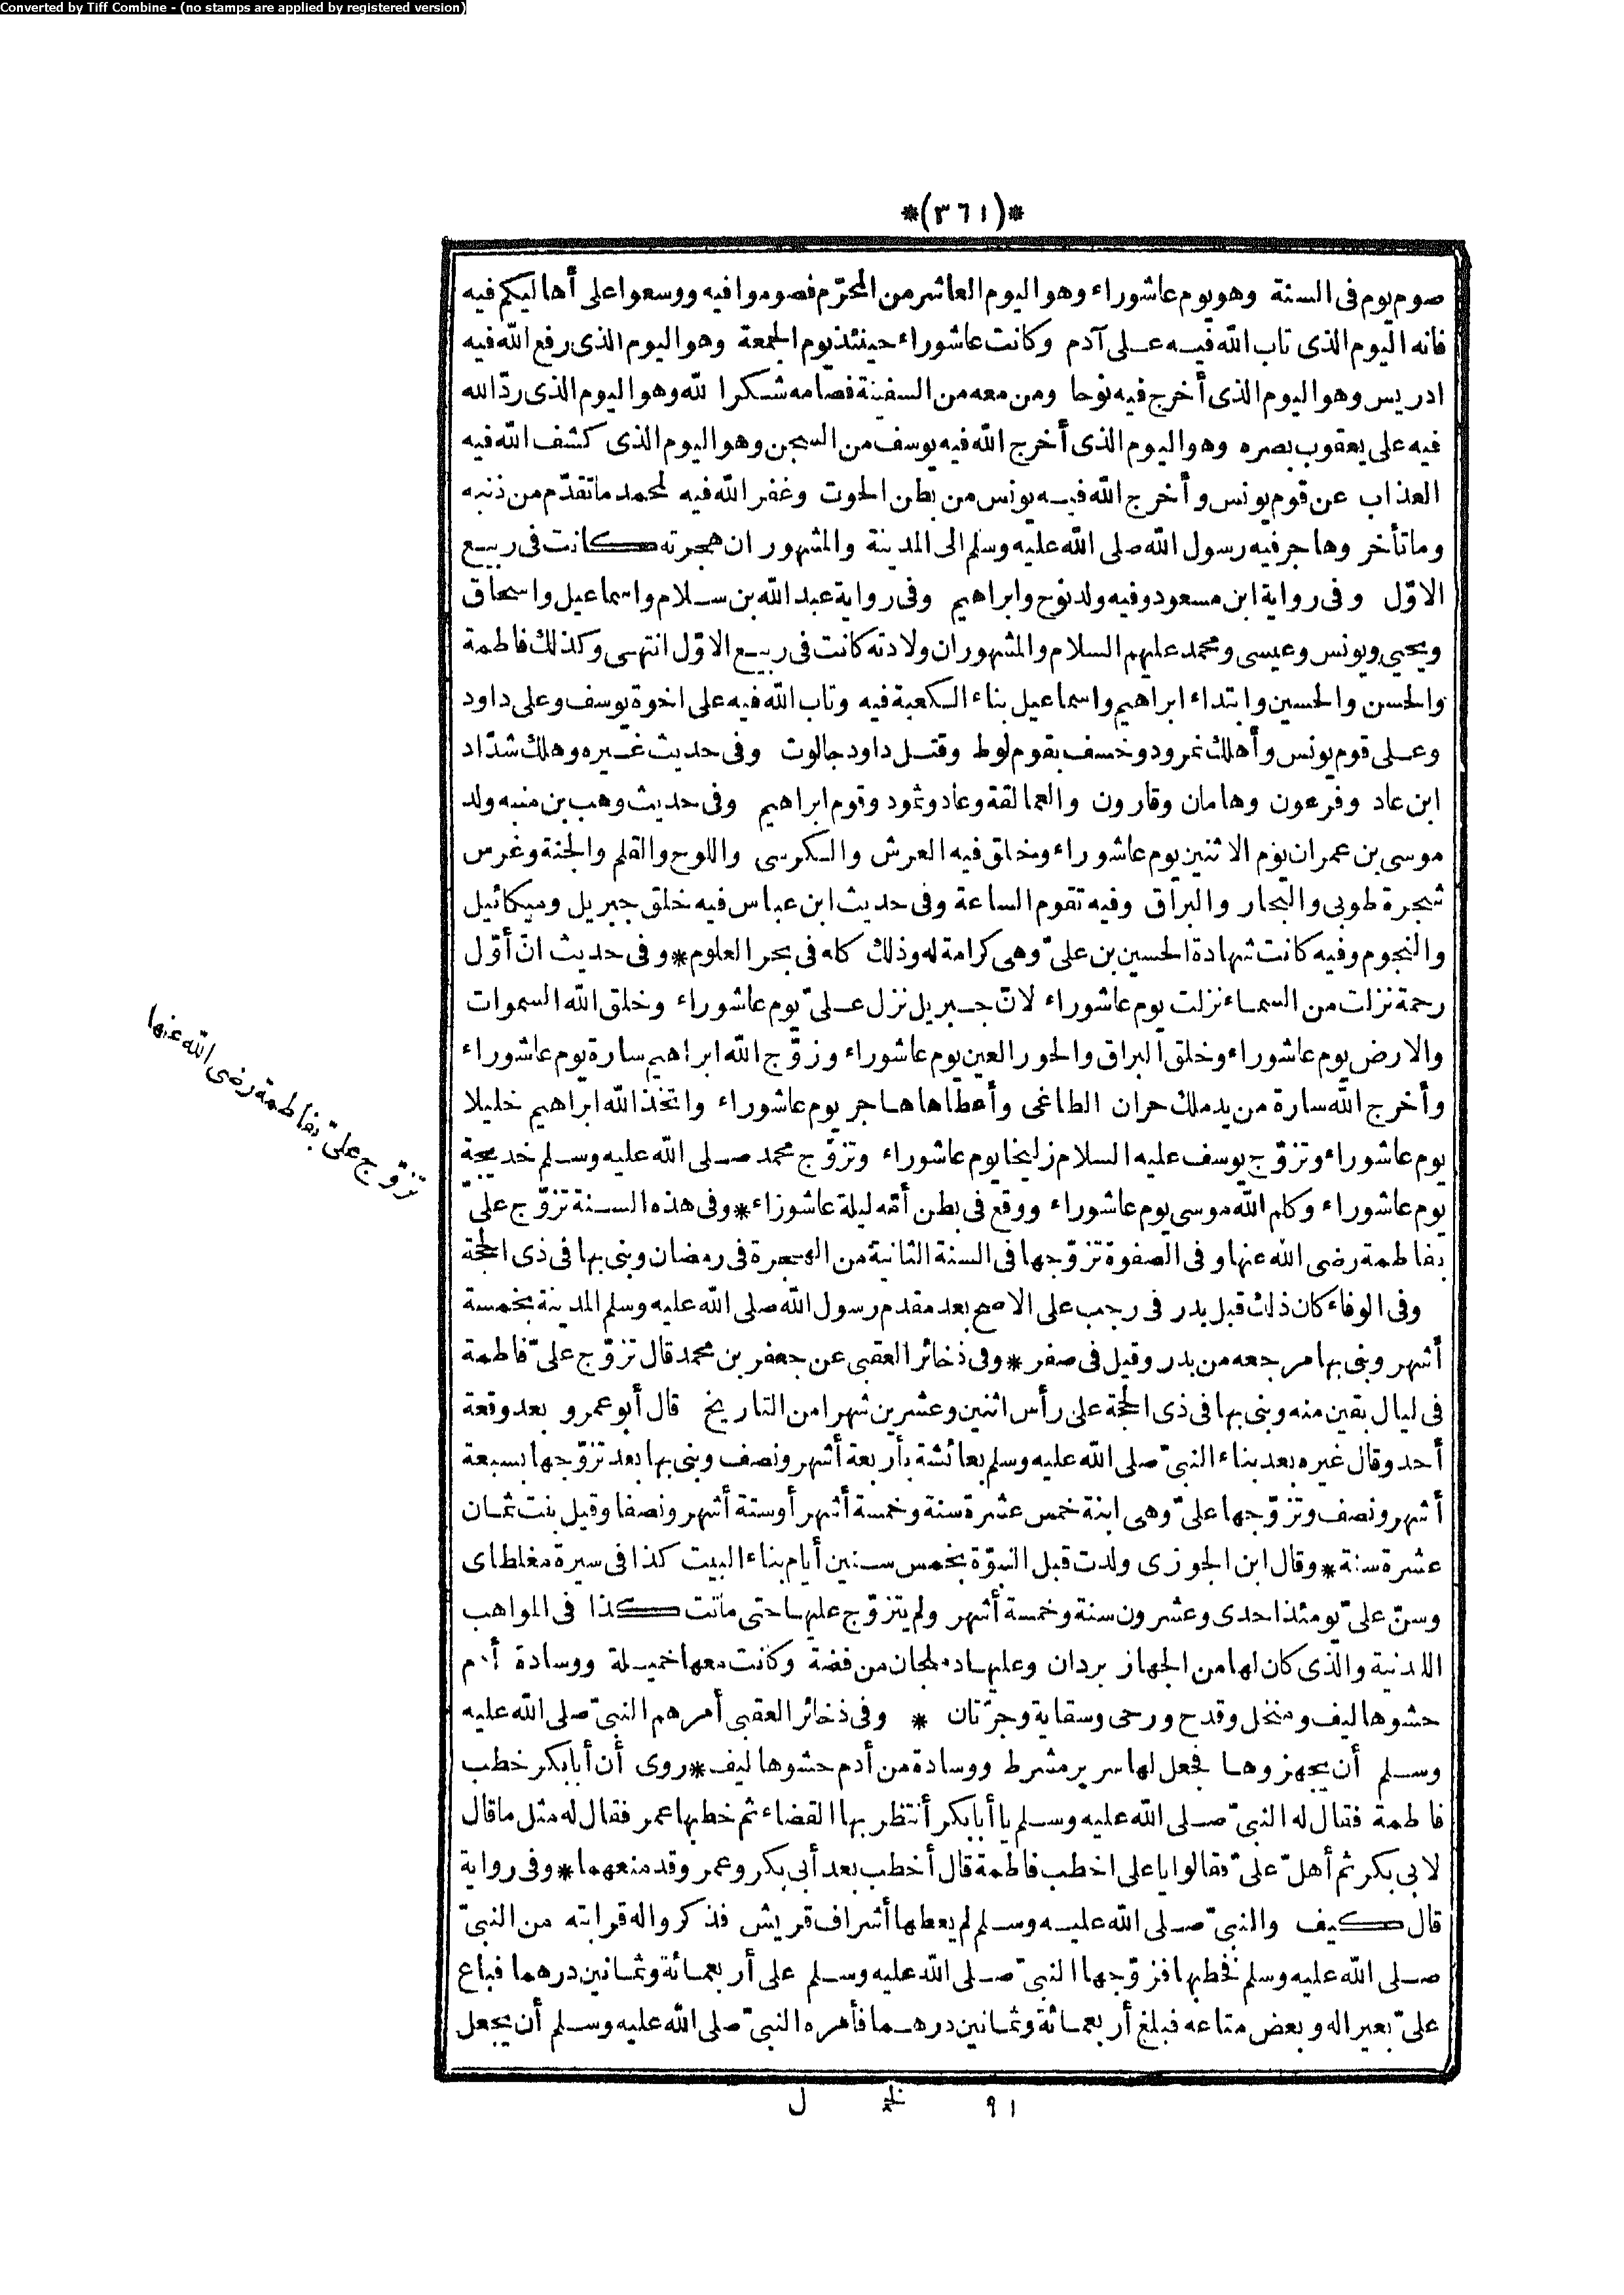 Converted by Tiff Combine - (no stamps are applied by registered version)
*(٣٦١)*
صوم يوم فى السنة وهو يوم عاشوراء وهو اليوم العاشر من المحرّم فصوموا فيه ووسعوا على أهاليكم فيه
فانه اليوم الذى تاب الله فيه على آدم وكانت عاشوراء حينئذ يوم الجمعة وهو اليوم الذى رفع الله فيه
ادريس وهو اليوم الذى أخرج فيه نوحا ومن معه من السفينة فصامه شكرا لله وهو اليوم الذى ردّ الله
فيه على يعقوب بصره وهو اليوم الذى أخرج الله فيه يوسف من السجن وهو اليوم الذى كشف الله فيه
العذاب عن قوم يونس وأخرج الله فيه يونس من بطن الحوت وغفر الله فيه لمحمد ما تقدّم من ذنبه
وما تأخر وهاجر فيه رسول الله صلى الله عليه وسلم الى المدينة والمشهور ان هجرته كانت فى ربيع
الاوّل وفى رواية ابن مسعود وفيه ولد نوح وابراهيم وفى رواية عبد الله بن سلام واسماعيل واسحاق
ويحيى ويونس وعيسى ومحمد عليهم السلام والمشهور ان ولادته كانت فى ربيع الاوّل انتهى وكذلك فاطمة
والحسن والحسين وابتداء ابراهيم واسماعيل بناء الكعبة فيه وتاب الله فيه على اخوة يوسف وعلى داود
وعلى قوم يونس وأهلك نمرود وخسف بقوم لوط وقتل داود جالوت وفى حديث غيره وهلك شدّاد
ابن عاد وفرعون وهامان وقارون والعمالقة وعاد وثمود وقوم ابراهيم وفى حديث وهب بن منبه ولد
موسى بن عمران يوم الاثنين يوم عاشوراء وخلق فيه العرش والكرسى واللوح والقلم والجنة وغرس
شجرة طوبى والبحار والبراق وفيه تقوم الساعة وفى حديث ابن عباس فيه خلق جبريل وميكائيل
والنجوم وفيه كانت شهادة الحسين بن علىّ وهى كرامة له وذلك كله فى بحر العلوم * وفى حديث انّ أوّل
رحمة نزلت من السماء نزلت يوم عاشوراء لانّ جبريل نزل علىّ يوم عاشوراء وخلق الله السموات
والارض يوم عاشوراء وخلق البراق والحور العين يوم عاشوراء وزوّج الله ابراهيم سارة يوم عاشوراء
وأخرج الله سارة من يد ملك حران الطاغى وأعطاها هاجر يوم عاشوراء واتخذ الله ابراهيم خليلا
يوم عاشوراء وتزوّج يوسف عليه السلام زليخا يوم عاشوراء وتزوّج محمد صلى الله عليه وسلم خديجة
يوم عاشوراء وكلم الله موسى يوم عاشوراء ووقع فى بطن أمّه ليلة عاشوراء * وفى هذه السنة تزوّج علىّ
بفاطمة رضى الله عنها وفى الصفوة تزوّجها فى السنة الثانية من الهجرة فى رمضان وبنى بها فى ذى الحجة
وفى الوفاء كان ذلك قبل بدر فى رجب على الاصح بعد مقدم رسول الله صلى الله عليه وسلم المدينة بخمسة
أشهر وبنى بها مرجعه من بدر وقيل فى صفر * وفى ذخائر العقبى عن جعفر بن محمد قال تزوّج علىّ فاطمة
فى ليال بقين منه وبنى بها فى ذى الحجة على رأس اثنين وعشرين شهرا من التاريخ قال أبو عمرو بعد وقعة
أحد وقال غيره بعد بناء النبىّ صلى الله عليه وسلم بعائشة بأربعة أشهر ونصف وبنى بها بعد تزوّجها بسبعة
أشهر ونصف وتزوّجها علىّ وهى ابنة خمس عشرة سنة وخمسة أشهر أو ستة أشهر ونصفا وقيل بنت ثمان
عشرة سنة * وقال ابن الجوزى ولدت قبل النبوّة بخمس سنين أيام بناء البيت كذا فى سيرة مغلطاى
وسنّ علىّ يومئذ احدى وعشرون سنة وخمسة أشهر ولم يتزوّج عليها حتى ماتت كذا فى المواهب
اللدنية والذى كان لها من الجهاز بردان وعليها دملجان من فضة وكانت معها خميلة ووسادة أدم
حشوها ليف ومنخل وقدح ورحى وسقاية وجرّتان * وفى ذخائر العقبى أمرهم النبىّ صلى الله عليه
وسلم أن يجهزوها فجعل لها سرير مشرط ووسادة من أدم حشوها ليف * روى أن أبا بكر خطب
فاطمة فقال له النبىّ صلى الله عليه وسلم يا أبا بكر أنتظر بها القضاء ثم خطبها عمر فقال له مثل ما قال
لابى بكر ثم أهل علىّ فقالوا يا على اخطب فاطمة قال أخطب بعد أبى بكر وعمر وقد منعهما * وفى رواية
قال كيف والنبىّ صلى الله عليه وسلم لم يعطها أشراف قريش فذكروا له قرابته من النبىّ
صلى الله عليه وسلم فخطبها فزوّجها النبىّ صلى الله عليه وسلم على أربعمائة وثمانين درهما فباع
علىّ بعيرا له وبعض متاعه فبلغ أربعمائة وثمانين درهما فأمره النبىّ صلى الله عليه وسلم أن يجعل
تزوّج علىّ بفاطمة رضى الله عنها
٩١ ل